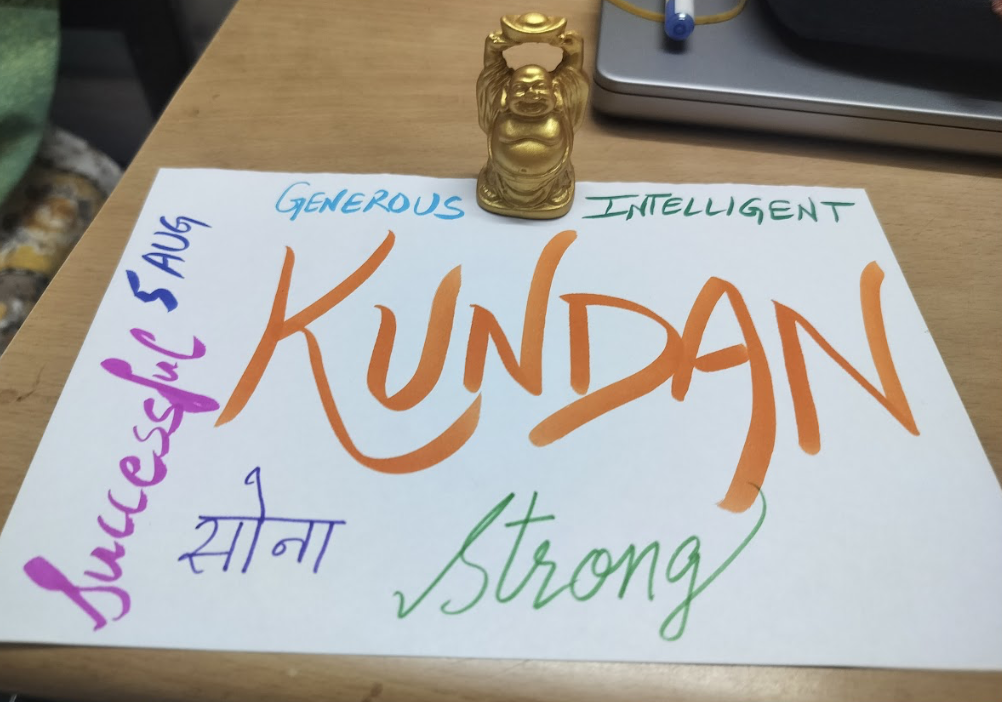 GENEROUS INTELLIGENT
5 AUG
KUNDAN
Successful
सोना
Strong